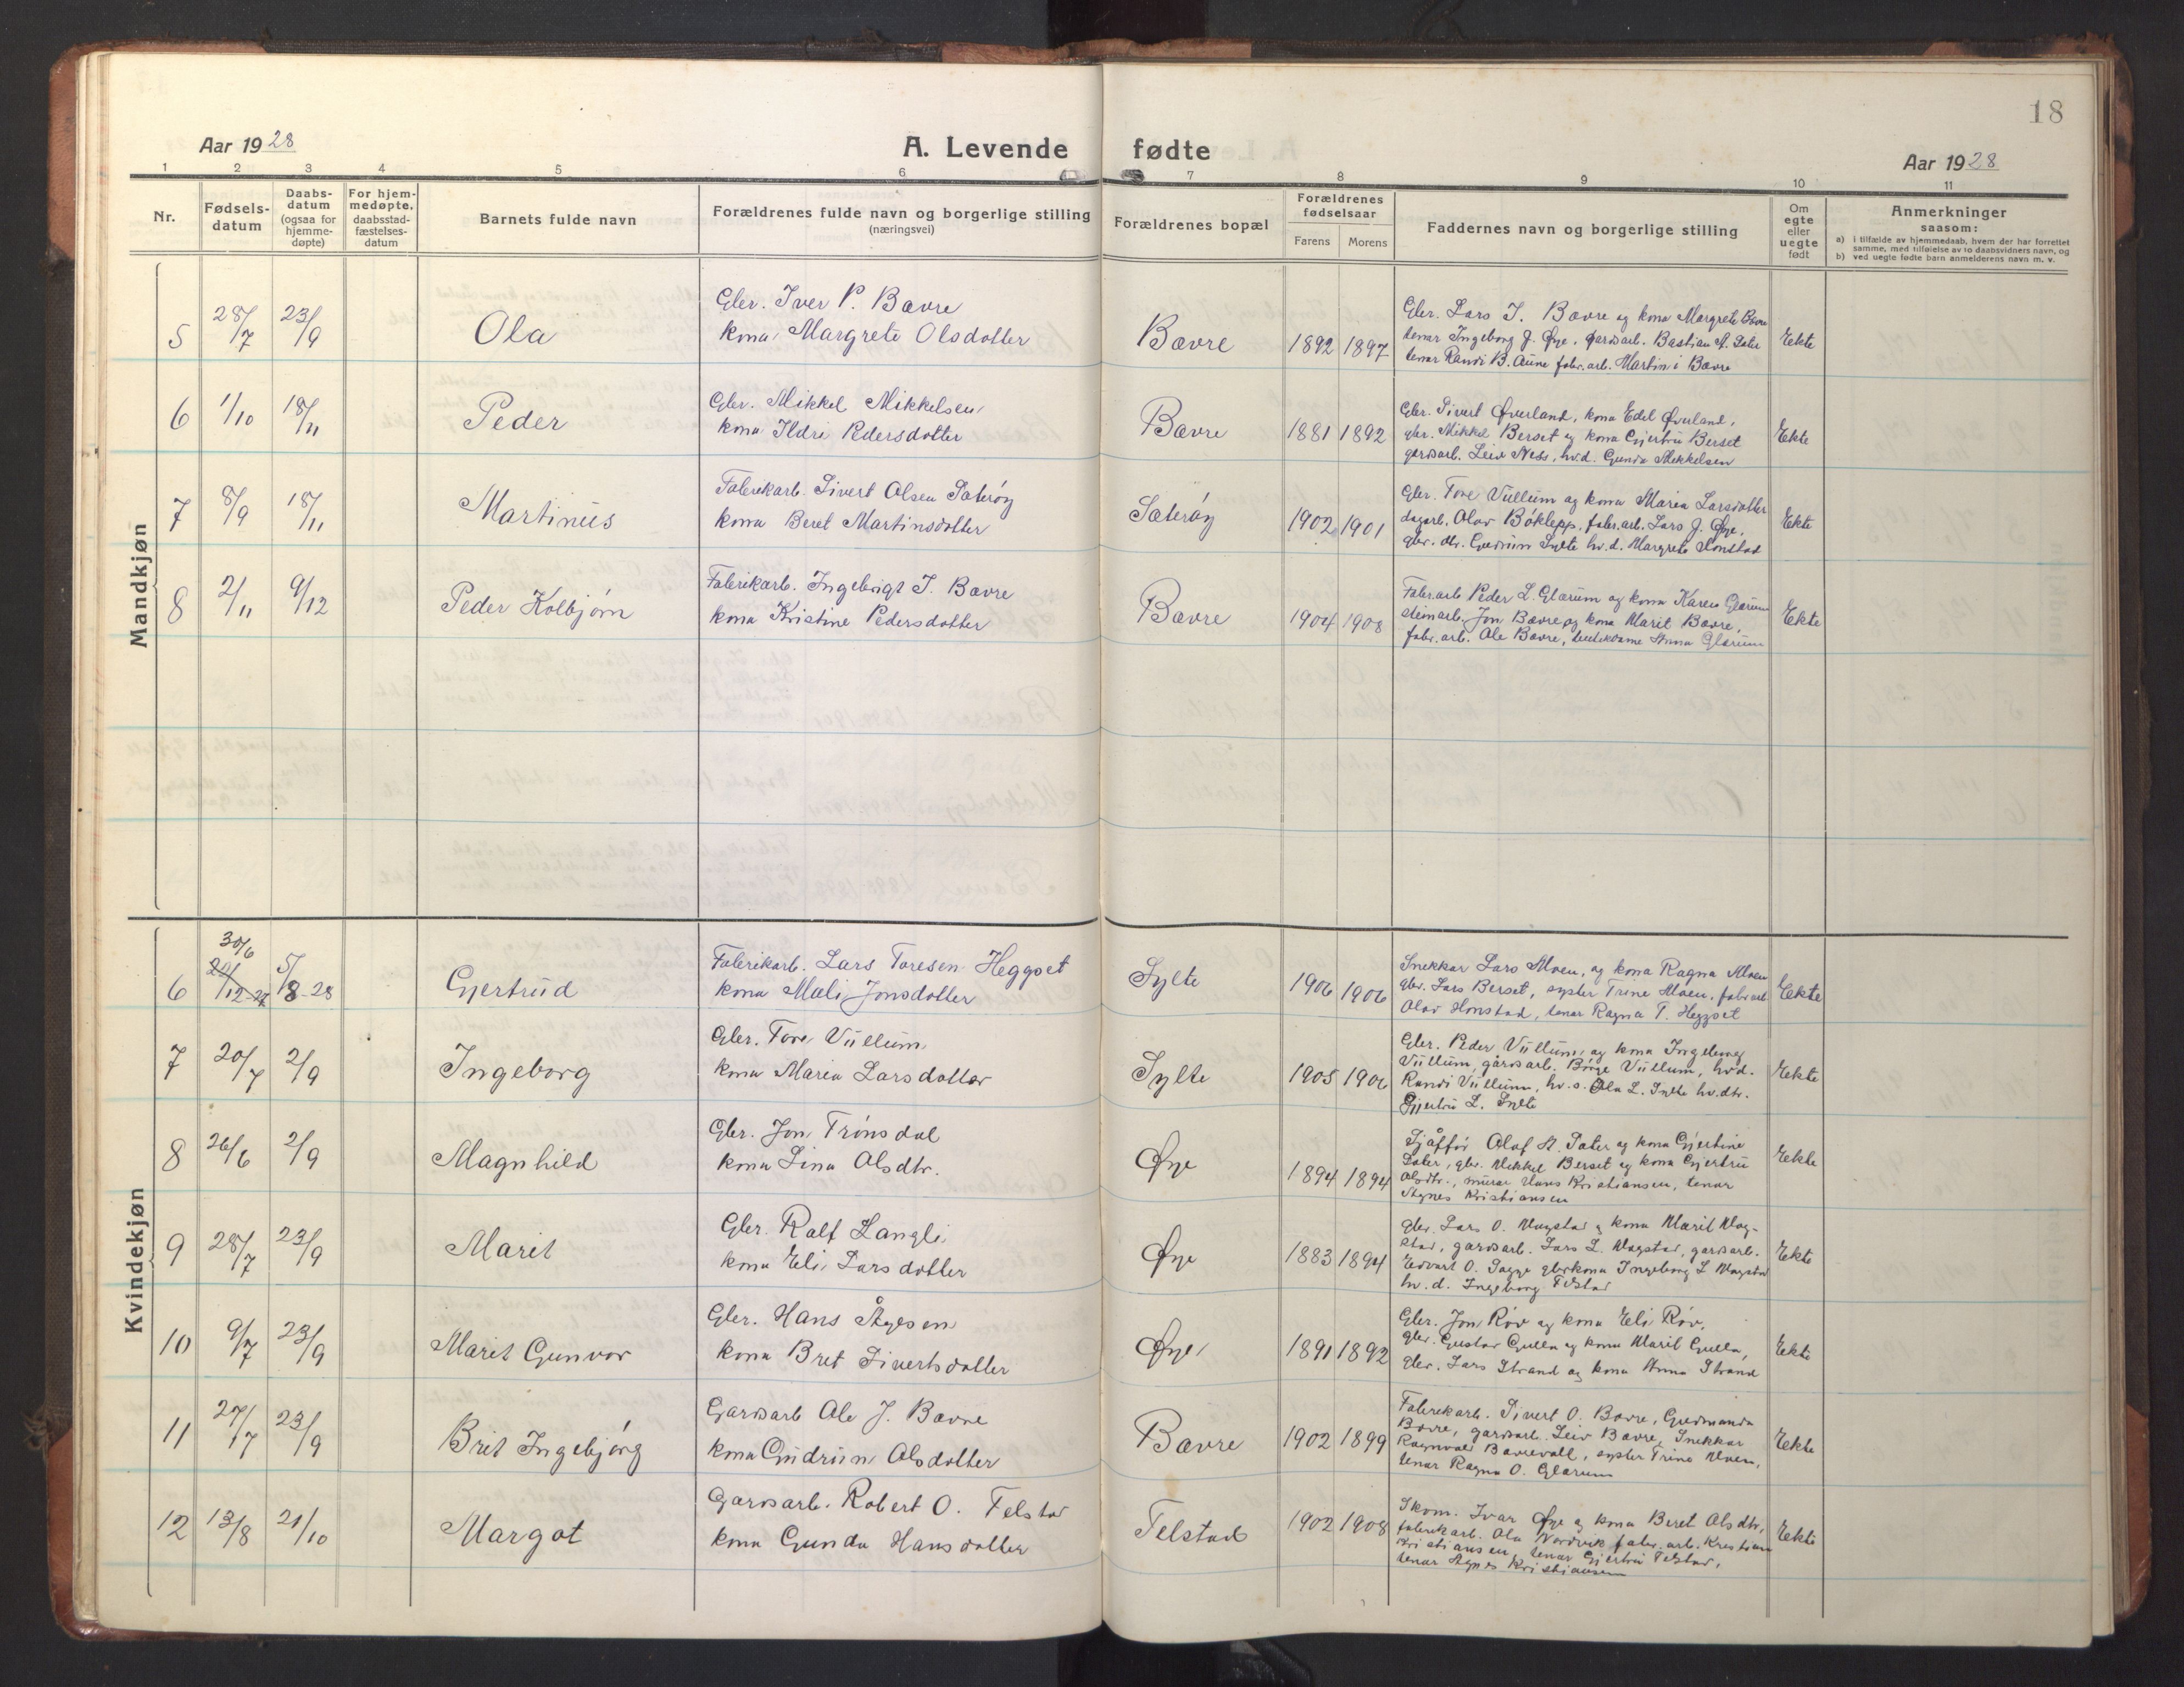 18
Aar 1928
A. Levende fødte
Aar 1928
1 2 3 4 5 6 7 8 9 10 11
Nr.
Fødsels-
datum
Daabs-
datum
(ogsaa for
hjemme-
døpte)
For hjem-
medøpte,
daabsstad-
fæstelses-
datum
Barnets fulde navn
Forældrenes fulde navn og borgerlige stilling
(næringsvei)
Forældrenes bopæl
Forældrenes
fødselsaar
Farens Morens
Faddernes navn og borgerlige stilling
Om
egte
eller
uegte
født
Anmerkninger
saasom:
a) i tilfælde av hjemmedaab, hvem der har forrettet
samme, med tilføielse av to daabsvidners navn, og
b) ved uegte fødte barn anmelderens navn m. v.
Mandkjøn
5 28/7 23/9 Ola
Gbr. Iver P. Bævre
kona Margrete Olsdotter
Bævre 1892 1897
Gbr. Lars I. Bævre og kona Margrete Bævre
tenar Ingeborg J. Øye, gardsarb. Bastian A. Sæter
tenar Randi B. Aune fabr.arb. Martin i Bævre
Ekte
6 1/10 18/11 Peder
Gbr. Mikkel Mikkelsen
kona Ildri Pedersdotter
Bævre 1881 1892
Gbr. Sivert Øverland, kona Edel Øverland,
gbr. Mikkel Berset og kona Gjertru Berset
gardsarb. Leiv Ness, hv.d. Gunda Mikkelsen
Ekte
7 8/9 18/11 Martinus
Fabrikarb. Sivert Olsen Sæterøy
kona Beret Martinsdotter
Sæterøy 1902 1901
Gbr. Tore Vullum og kona Maria Larsdotter
dagarb. Olav Bøklepp, fabr.arb. Lars J. Øye,
gbr. dtr. Gudrun Sylte hv.d. Margrete Honstad
Ekte
8 2/11 9/12 Peder Kolbjørn
Fabrikarb. Ingebrigt I. Bævre
kona Kristine Pedersdotter
Bævre 1904 1908
Fabr.arb Peder L. Glærum og kona Karen Glærum
steinarb. Jon Bævre og kona Marit Bævre,
fabr.arb. Ole Bævre, butikdame Anna Glærum
Ekte
Kvindekjøn
30/6
6 20/12-27 5/8-28 Gjertrud
Fabrikarb. Lars Toresen Heggset
kona Mali Jonsdotter
Sylte 1906 1906
Snekkar Lars Moen, og kona Ragna Moen
gbr. Lars Berset, syster Trine Moen, fabr.arb
Olav Honstad, tenar Ragna T. Heggset
Ekte
7 20/7 2/9 Ingeborg
Gbr. Tore Vullum
kona Maria Larsdotter
Sylte 1905 1906
Gbr. Peder Vullum og kona Ingeborg
Vullum, gårdsarb. Børge Vullum, hv.d.
Randi Vullum, hv.s. Ola L. Sylte hv.dtr.
Gjertru L. Sylte
Ekte
8 26/6 2/9 Magnhild
Gbr. Jon Trønsdal
kona Lina Olsdtr.
Øye 1894 1894
Sjåffør Olaf A. Sæter og kona Gjertine
Sæter, gbr. Mikkel Berset og kona Gjertru
Olsdtr., murar Hans Kristiansen, tenar
Agnes Kristiansen
Ekte
9 28/7 23/9 Marit
Gbr. Ralf Langli
kona Eli Larsdotter
Øye 1883 1894
Gbr. Lars O. Mogstad og kona Marit Mog-
stad, gardsarb. Lars L. Mogstad, gardsarb.
Edvart O. Sagge gbrkona Ingeborg L Mogstad
hv.d. Ingeborg Telstad
Ekte
10 9/7 23/9 Marit Gunvor
Gbr. Hans Ågesen
kona Bret Sivertsdotter
Øye 1891 1892
Gbr. Jon Røv og kona Eli Røv,
gbr. Gustav Gulla og kona Marit Gulla,
gbr. Lars Strand og kona Anna Strand
Ekte
11 27/7 23/9 Brit Ingebjørg
Gardsarb Ole J. Bævre
kona Gudrun Olsdotter
Bævre 1902 1899
Fabrikarb. Sivert O. Bævre, Gudmunda
Bævre, gardsarb. Leiv Bævre, Snekkar
Ragnvald Bævrevoll, syster Trine Moen,
tenar Ragna O. Glærum
Ekte
12 13/8 21/10 Margot
Gardsarb. Robert O. Telstad
kona Gunda Hansdotter
Telstad 1902 1908
Skom. Ivar Øye og kona Beret Olsdtr,
fabrikarb. Ola Nordvik fabr.arb. Kristian
Kristiansen, tenar Gjertru Telstad,
tenar Agnes Kristiansen
Ekte